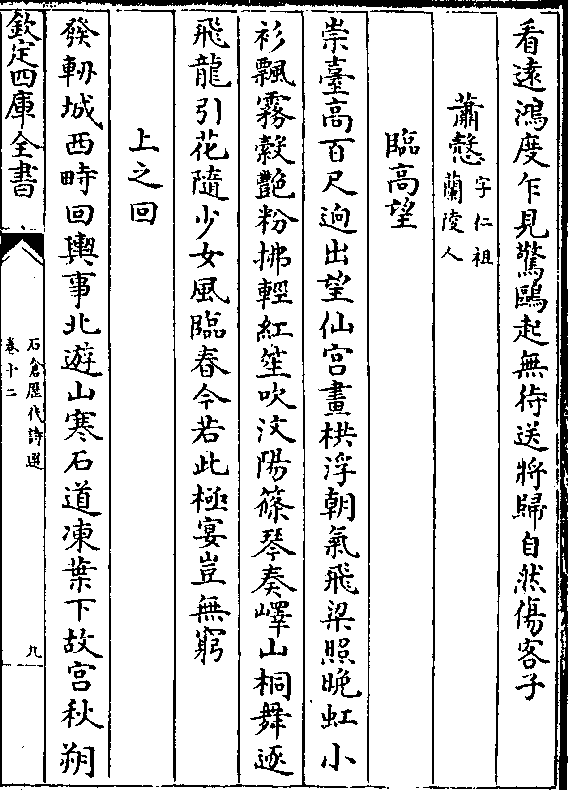 看遠鴻度乍見驚鷗起無待送將歸自然傷客子
蕭慤字仁祖蘭陵人
臨高望
崇臺高百尺迥出望仙宮畫栱浮朝氣飛梁照晚虹小
衫飄霧縠艷粉拂輕紅笙吹汶陽篠琴奏嶧山桐舞逐
飛龍引花隨少女風臨春今若此極宴豈無窮
上之回
發軔城西畤回輿事北遊山寒石道凍葉下故宮秋朔
欽定四庫全書
石倉歷代詩選
卷十二
九